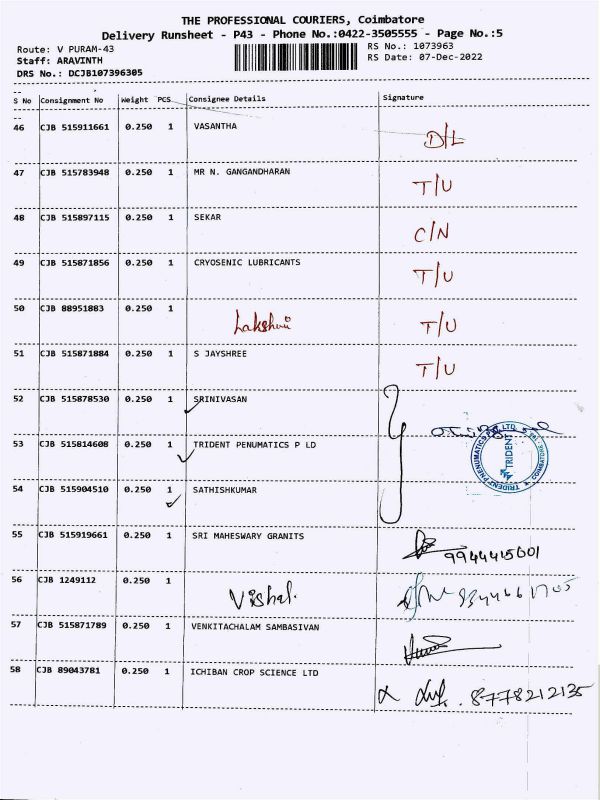 THE PROFESSIONAL COURIERS, Coimbatore
Delivery Runsheet - P43 - Phone No.:0422-3505555 - Page No.:5
Route: V PURAM-43 RS No.: 1073963
Staff: ARAVINTH RS Date: 07-Dec-2022
DRS No.: DCJB107396305
S No Consignment No Weight PCS Consignee Details Signature
46 CJB 515911661 0.250 1 VASANTHA D/L
47 CJB 515783948 0.250 1 MR N. GANGANDHARAN T/U
48 CJB 515897115 0.250 1 SEKAR C/N
49 CJB 515871856 0.250 1 CRYOSENIC LUBRICANTS T/U
50 CJB 88951883 0.250 1 Lakshmi T/U
51 CJB 515871884 0.250 1 S JAYSHREE T/U
52 CJB 515878530 0.250 1 SRINIVASAN
53 CJB 515814608 0.250 1 TRIDENT PENUMATICS P LD
TRIDENT PNEUMATICS PVT. LTD.
TRIDENT
54 CJB 515904510 0.250 1 SATHISHKUMAR
55 CJB 515919661 0.250 1 SRI MAHESWARY GRANITS 9944415001
56 CJB 1249112 0.250 1 Vishal.
57 CJB 515871789 0.250 1 VENKITACHALAM SAMBASIVAN
58 CJB 89043781 0.250 1 ICHIBAN CROP SCIENCE LTD 8778212135